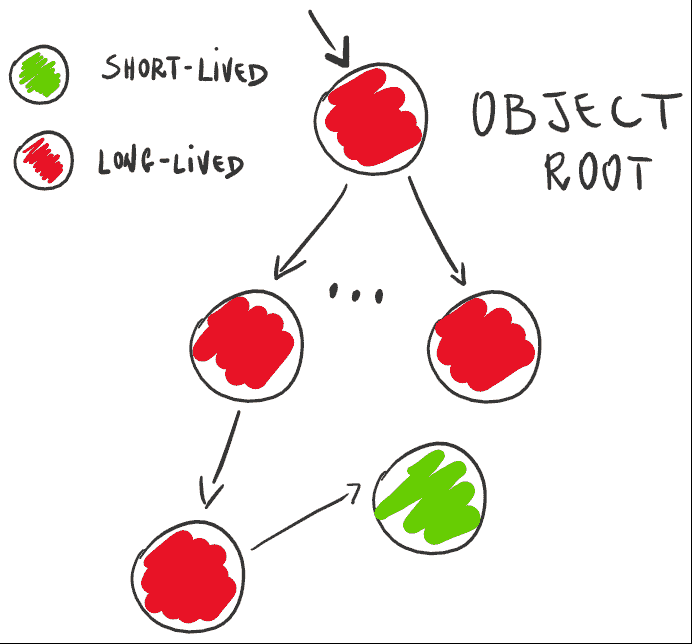 SHORT-LiVED
LONG-LiVED
OBJECT
ROOT
...